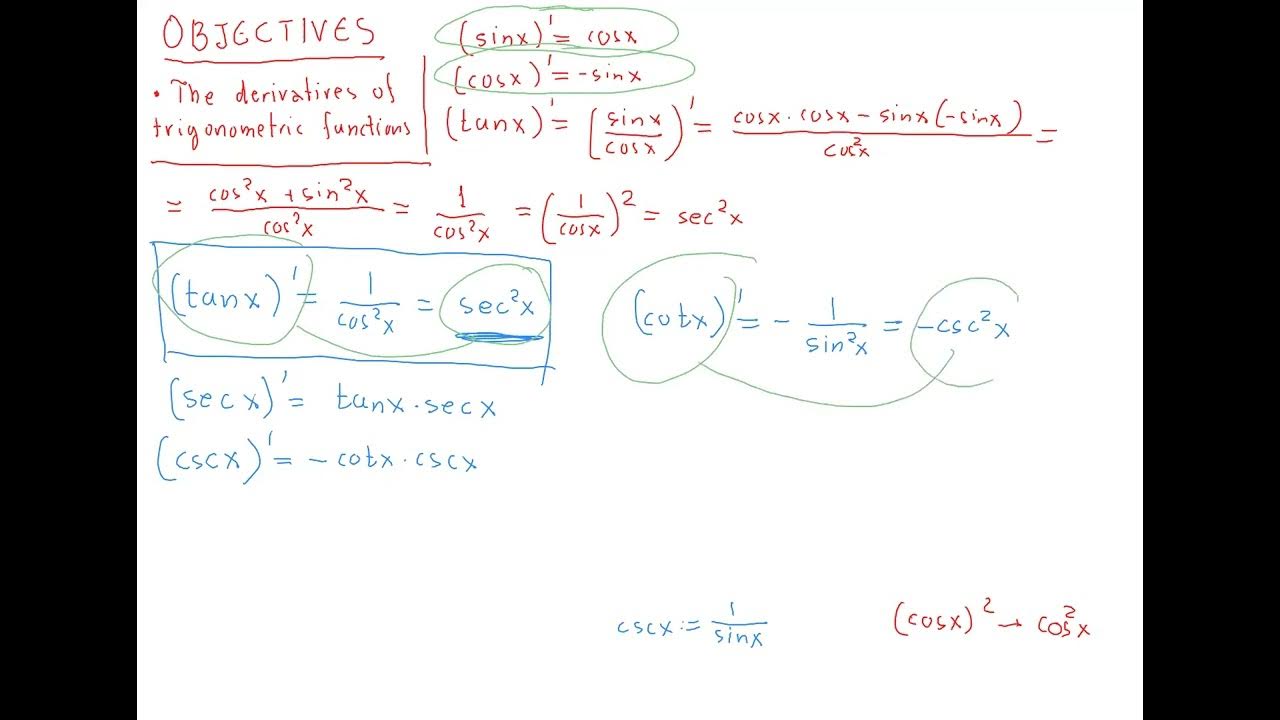 OBJECTIVES
• The derivatives of
trigonometric functions
(sinx)' = cosx
(cosx)' = -sinx
(tanx)' = (sinx/cosx)' = (cosx · cosx - sinx(-sinx))/cos²x =
= (cos²x + sin²x)/cos²x = 1/cos²x = (1/cosx)² = sec²x
(tanx)' = 1/cos²x = sec²x
(cotx)' = - 1/sin²x = -csc²x
(secx)' = tanx · secx
(cscx)' = - cotx · cscx
cscx := 1/sinx
(cosx)² → cos²x